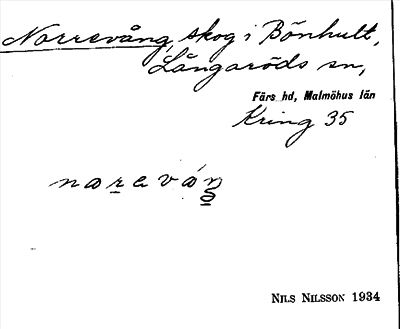 Norrevång, skog i Bönhult,
Långaröds sn,
Färs hd, Malmöhus län
Kring 35
nɑreváŋ
NILS NILSSON 1934